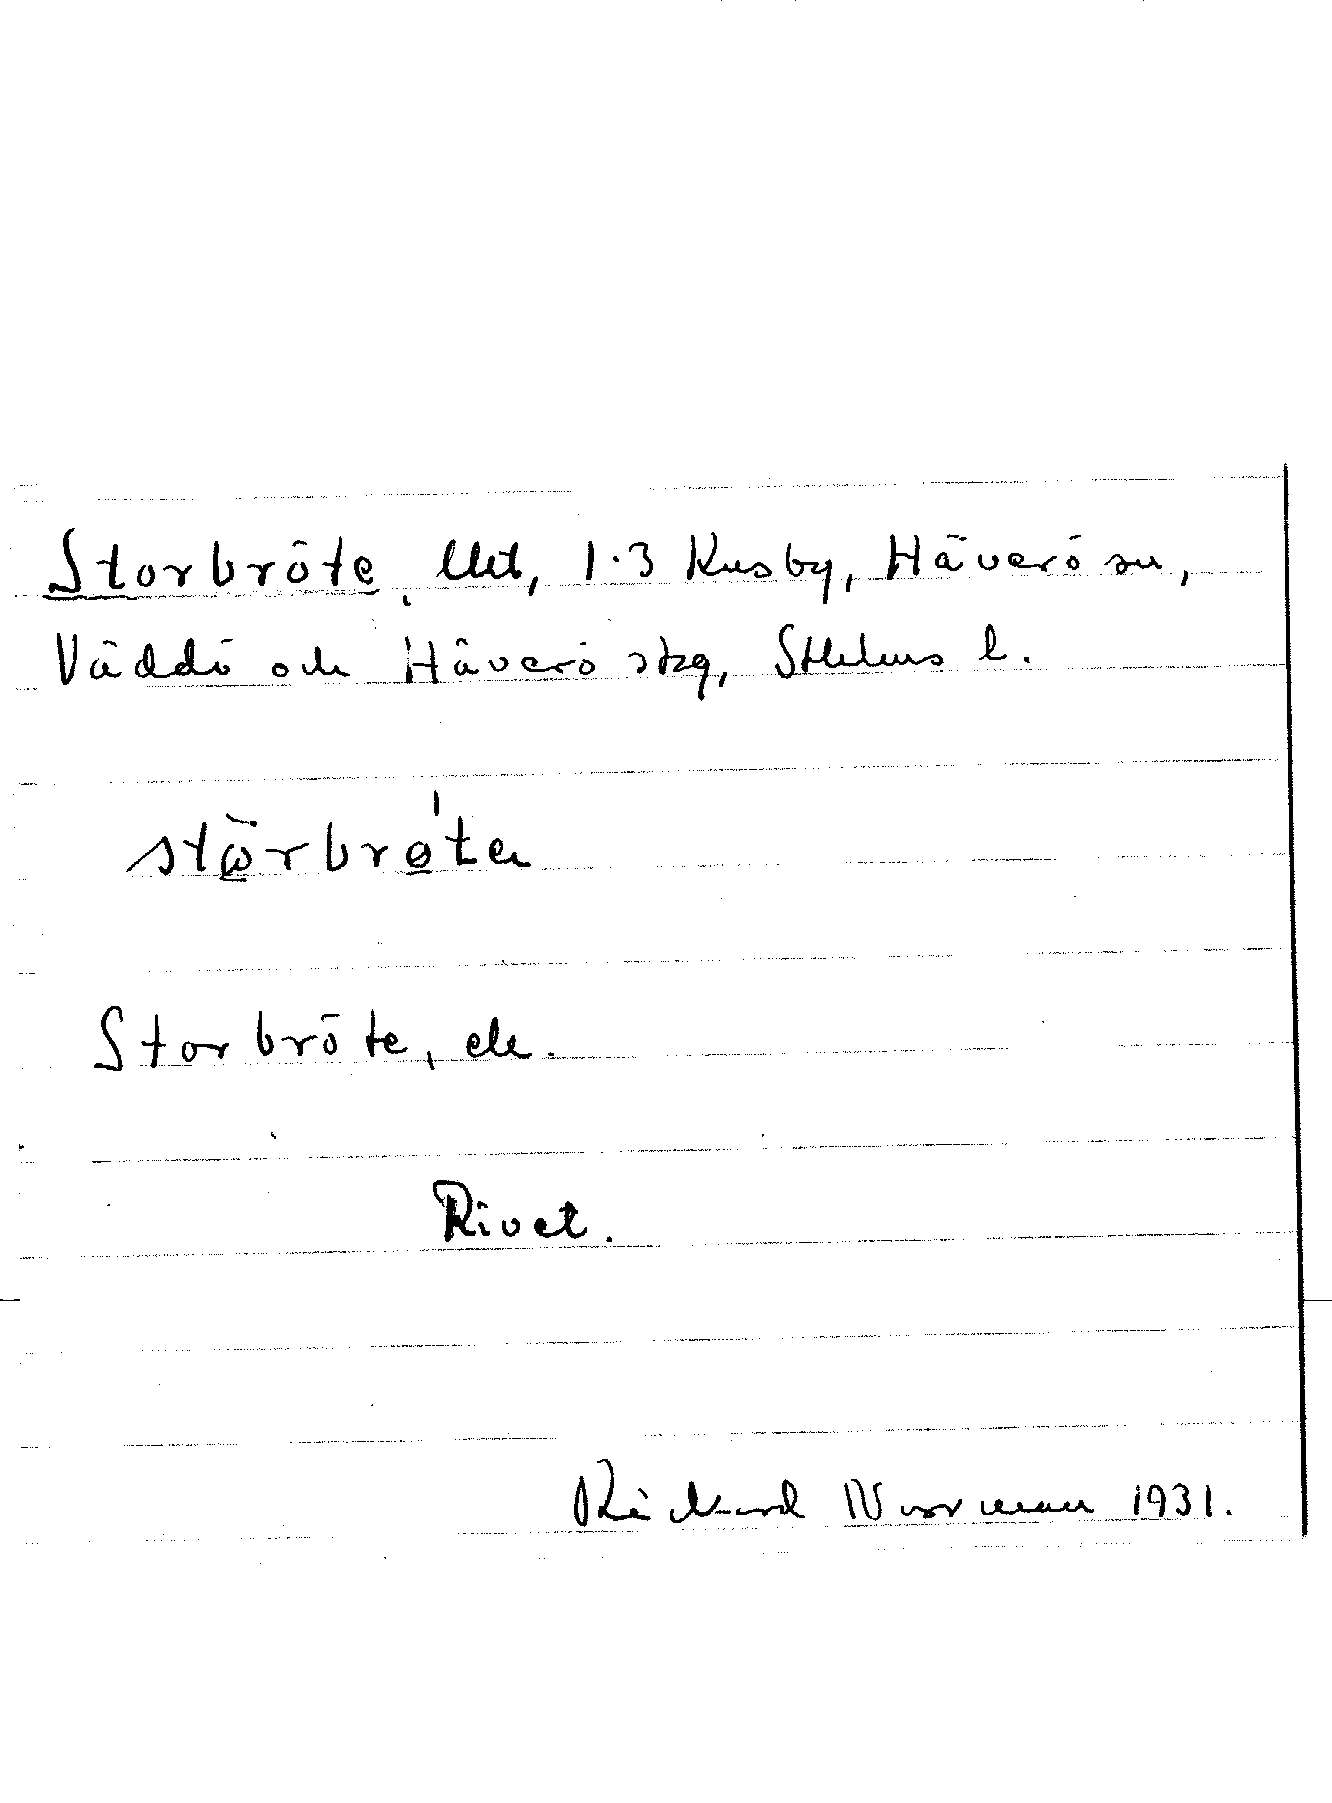 Storbröte, Utt, 1.3 Kusby, Häverö sn,
Väddö och Häverö skg, Sthlms l.
stω̄rbrøtɐ
Storbröte, de.
Rivet.
Rickard Norman 1931.